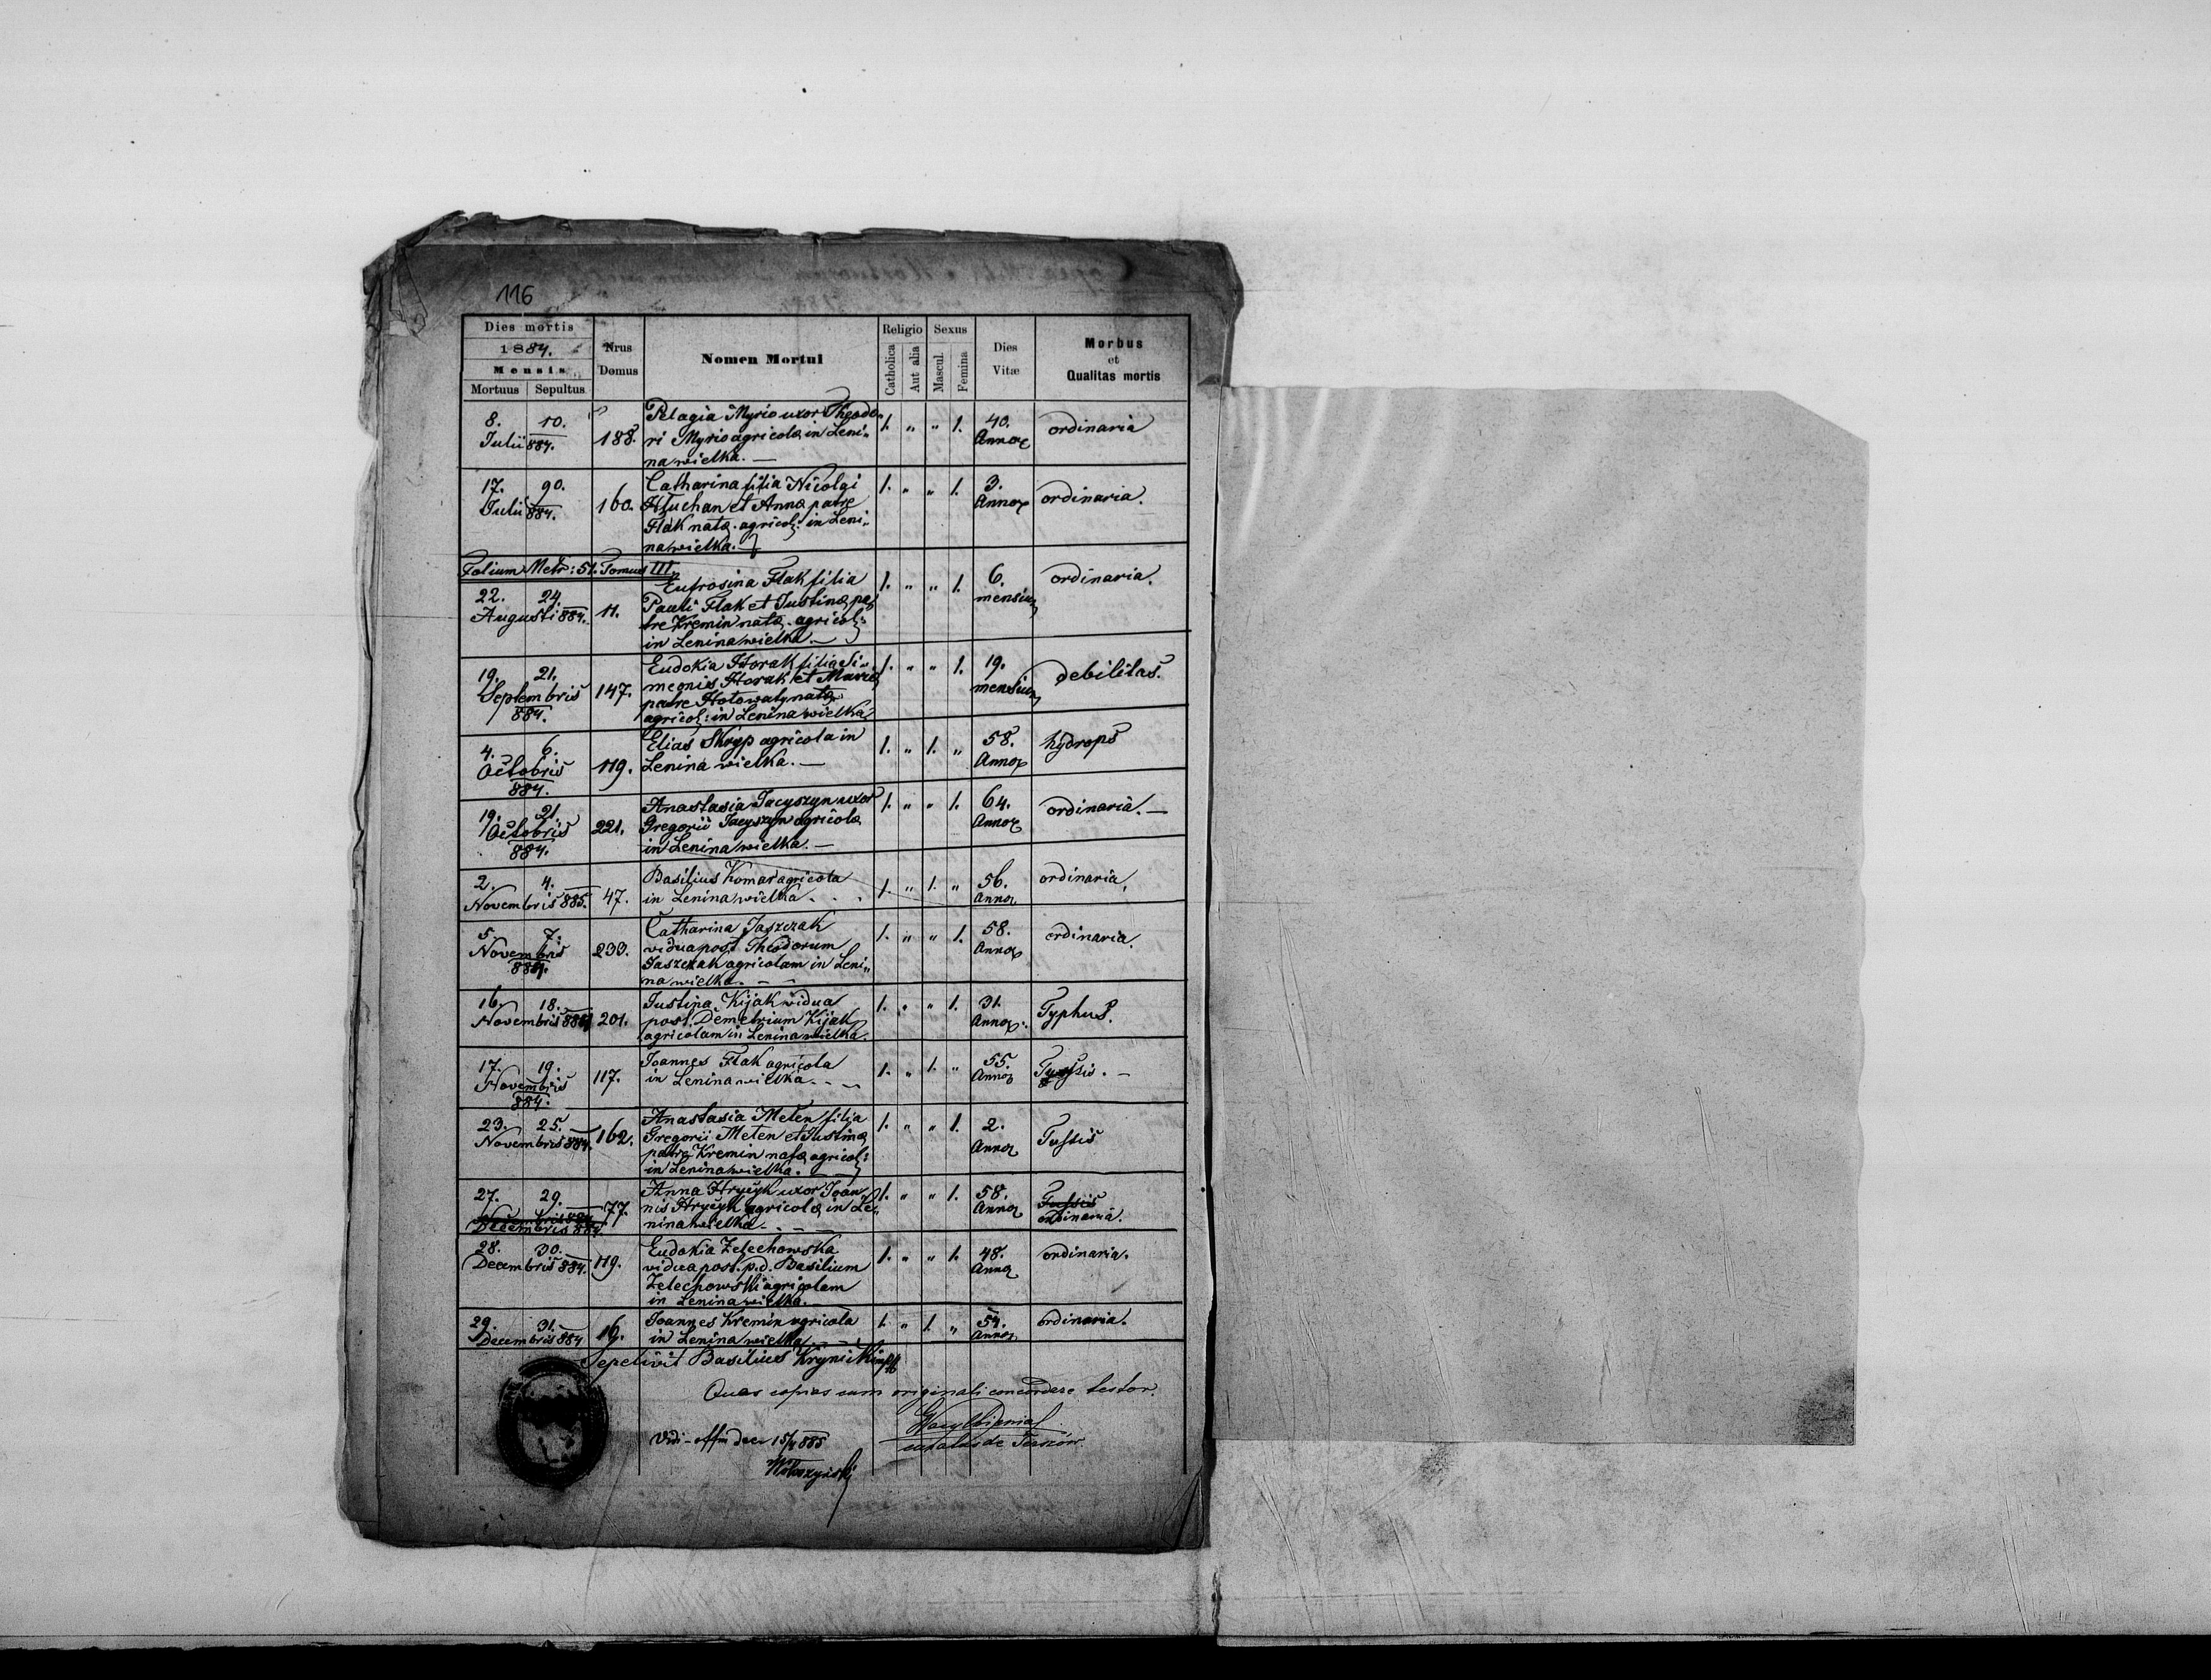 116
Dies mortis
1884.
Mensis
Mortuus Sepultus
Nrus Domus
Nomen Mortui
Religio
Catholica
Aut alia
Sexus
Mascul.
Femina
Dies Vitæ
Morbus et Qualitas mortis
8. 10. Pelagia Myrio uxor Theodo„ 1. „ „ 1. 40. ordinaria
Julii 884. 188. ri Myrio agricolæ in Leni„ Annor
na wielka. —
17. 90. Catharina filia Nicolai 1. „ „ 1. 3. ordinaria.
Julii 884. 160. Hłuchan et Annæ patre Annor
Flak natæ. agricol: in Leni„
na wielka. —
Folium Metr: 51. Tomus III.
22. 24. Eufrosina Flak filia 1. „ „ 1. 6. ordinaria.
Augusti 884. 11. Pauli Flak et Justinæ pa„ mensium
tre Kremin natæ. agricol:
in Lenina wielka. —
19. 21. Eudokia Horak filia Si„ 1. „ „ 1. 19. debilitas.
Septembris 147. meonis Horak et Mariæ mensium
884. patre Hołowaty natæ
agricol: in Lenina wielka
4. 6. Elias Skryp agricola in 1. „ 1. „ 58. hydrops
Octobris 119. Lenina wielka. — Annor
884.
19. 21. Anastasia Jacyszyn uxor 1. „ „ 1. 64. ordinaria. —
Octobris 221. Gregorii Jacyszyn agricolæ Annor
884. in Lenina wielka. —
2. 4. Basilius Komar agricola 1. „ 1. „ 56. ordinaria.
Novembris 885. 47. in Lenina wielka . . . Annor
5. 7. Catharina Jaszczak 1. „ „ 1. 58. ordinaria.
Novembris 233. vidua post Theodorum Annor
884. Jaszczak agricolam in Leni„
na wielka. —
16. 18. Justina Kijak vidua 1. „ „ 1. 31. Typhus.
Novembris 884. 201. post Demetrium Kijak Annor.
agricolam in Lenina wielka.
17. 19. Joannes Flak agricola 1. „ 1. „ 55. Tussis. —
Novembris 117. in Lenina wielka. Annor
884.
23. 25. Anastasia Meten filia 1. „ „ 1. 2. Tussis
Novembris 884. 162. Gregorii Meten et Justinæ Annor
patre Kremin natæ agricol:
in Lenina wielka.
27. 29. Anna Hrycyk uxor Joan„ 1. „ „ 1. 58. Tussis
Novembris 884. 77. nis Hrycyk agricolæ in Le„ Annor ordinaria.
Decembris 884. nina wielka.
28. 30. Eudokia Żelechowska 1. „ „ 1. 48. ordinaria.
Decembris 884. 119. vidua post. p.d. Basilium Annor
Żelechowski agricolam
in Lenina wielka. —
29. 31. Joannes Kremin agricola 1. „ 1. „ 54. ordinaria.
Decembris 884 16. in Lenina wielka Annor
Sepelivit Basilius Krynicki
Quas copias cum originali concordare testor.
Vidi 15/ 885